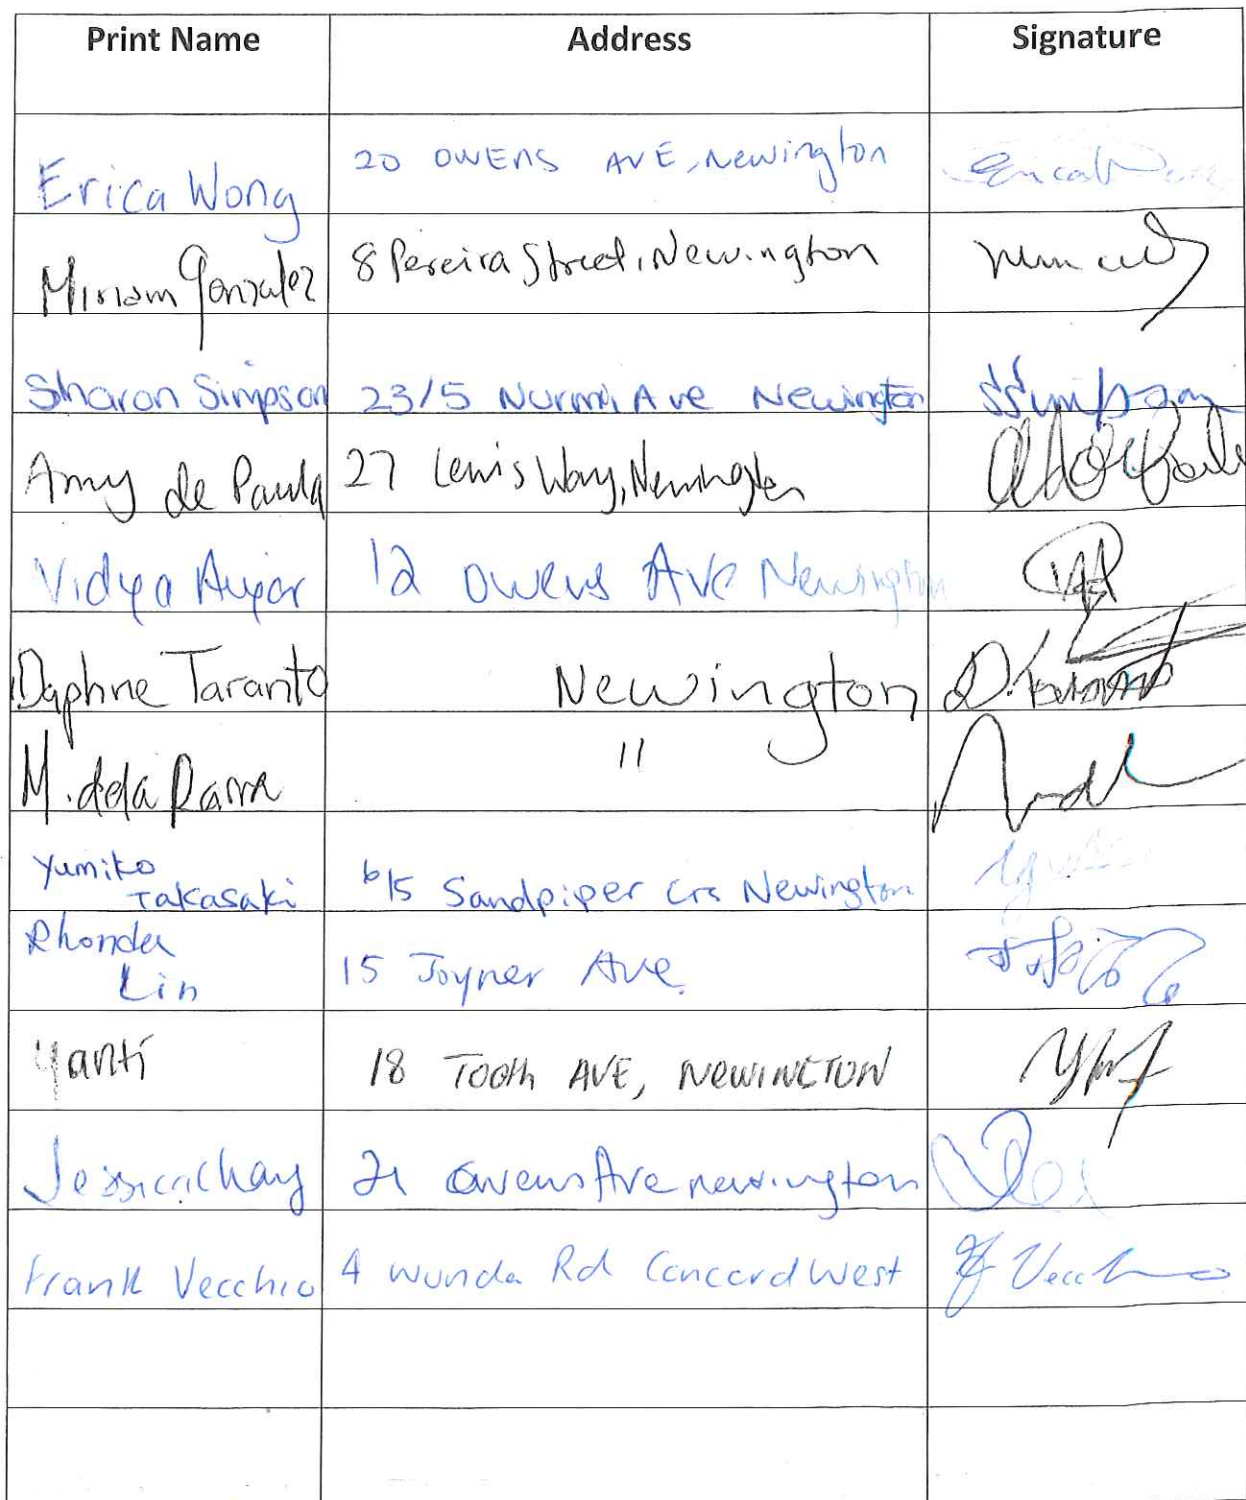 Print Name Address Signature
Erica Wong 20 OWENS AVE, Newington
Miriam Gonzalez 8 Pereira Street, Newington
Sharon Simpson 23/5 Nurmi Ave Newington SSimpson
Amy de Paula 27 Lewis Way, Newington
Vidya Aiyar 12 Owens Ave Newington
Daphne Taranto Newington D. Taranto
M. dela Parra "
Yumiko 6/5 Sandpiper Crs Newington
Takasaki
Rhonda 15 Joyner Ave.
Lin
Yanti 18 Tooth AVE, NEWINGTON
Jessica Chay 21 Owens Ave newington
Frank Vecchio 4 Wunda Rd Concord West F Vecchio